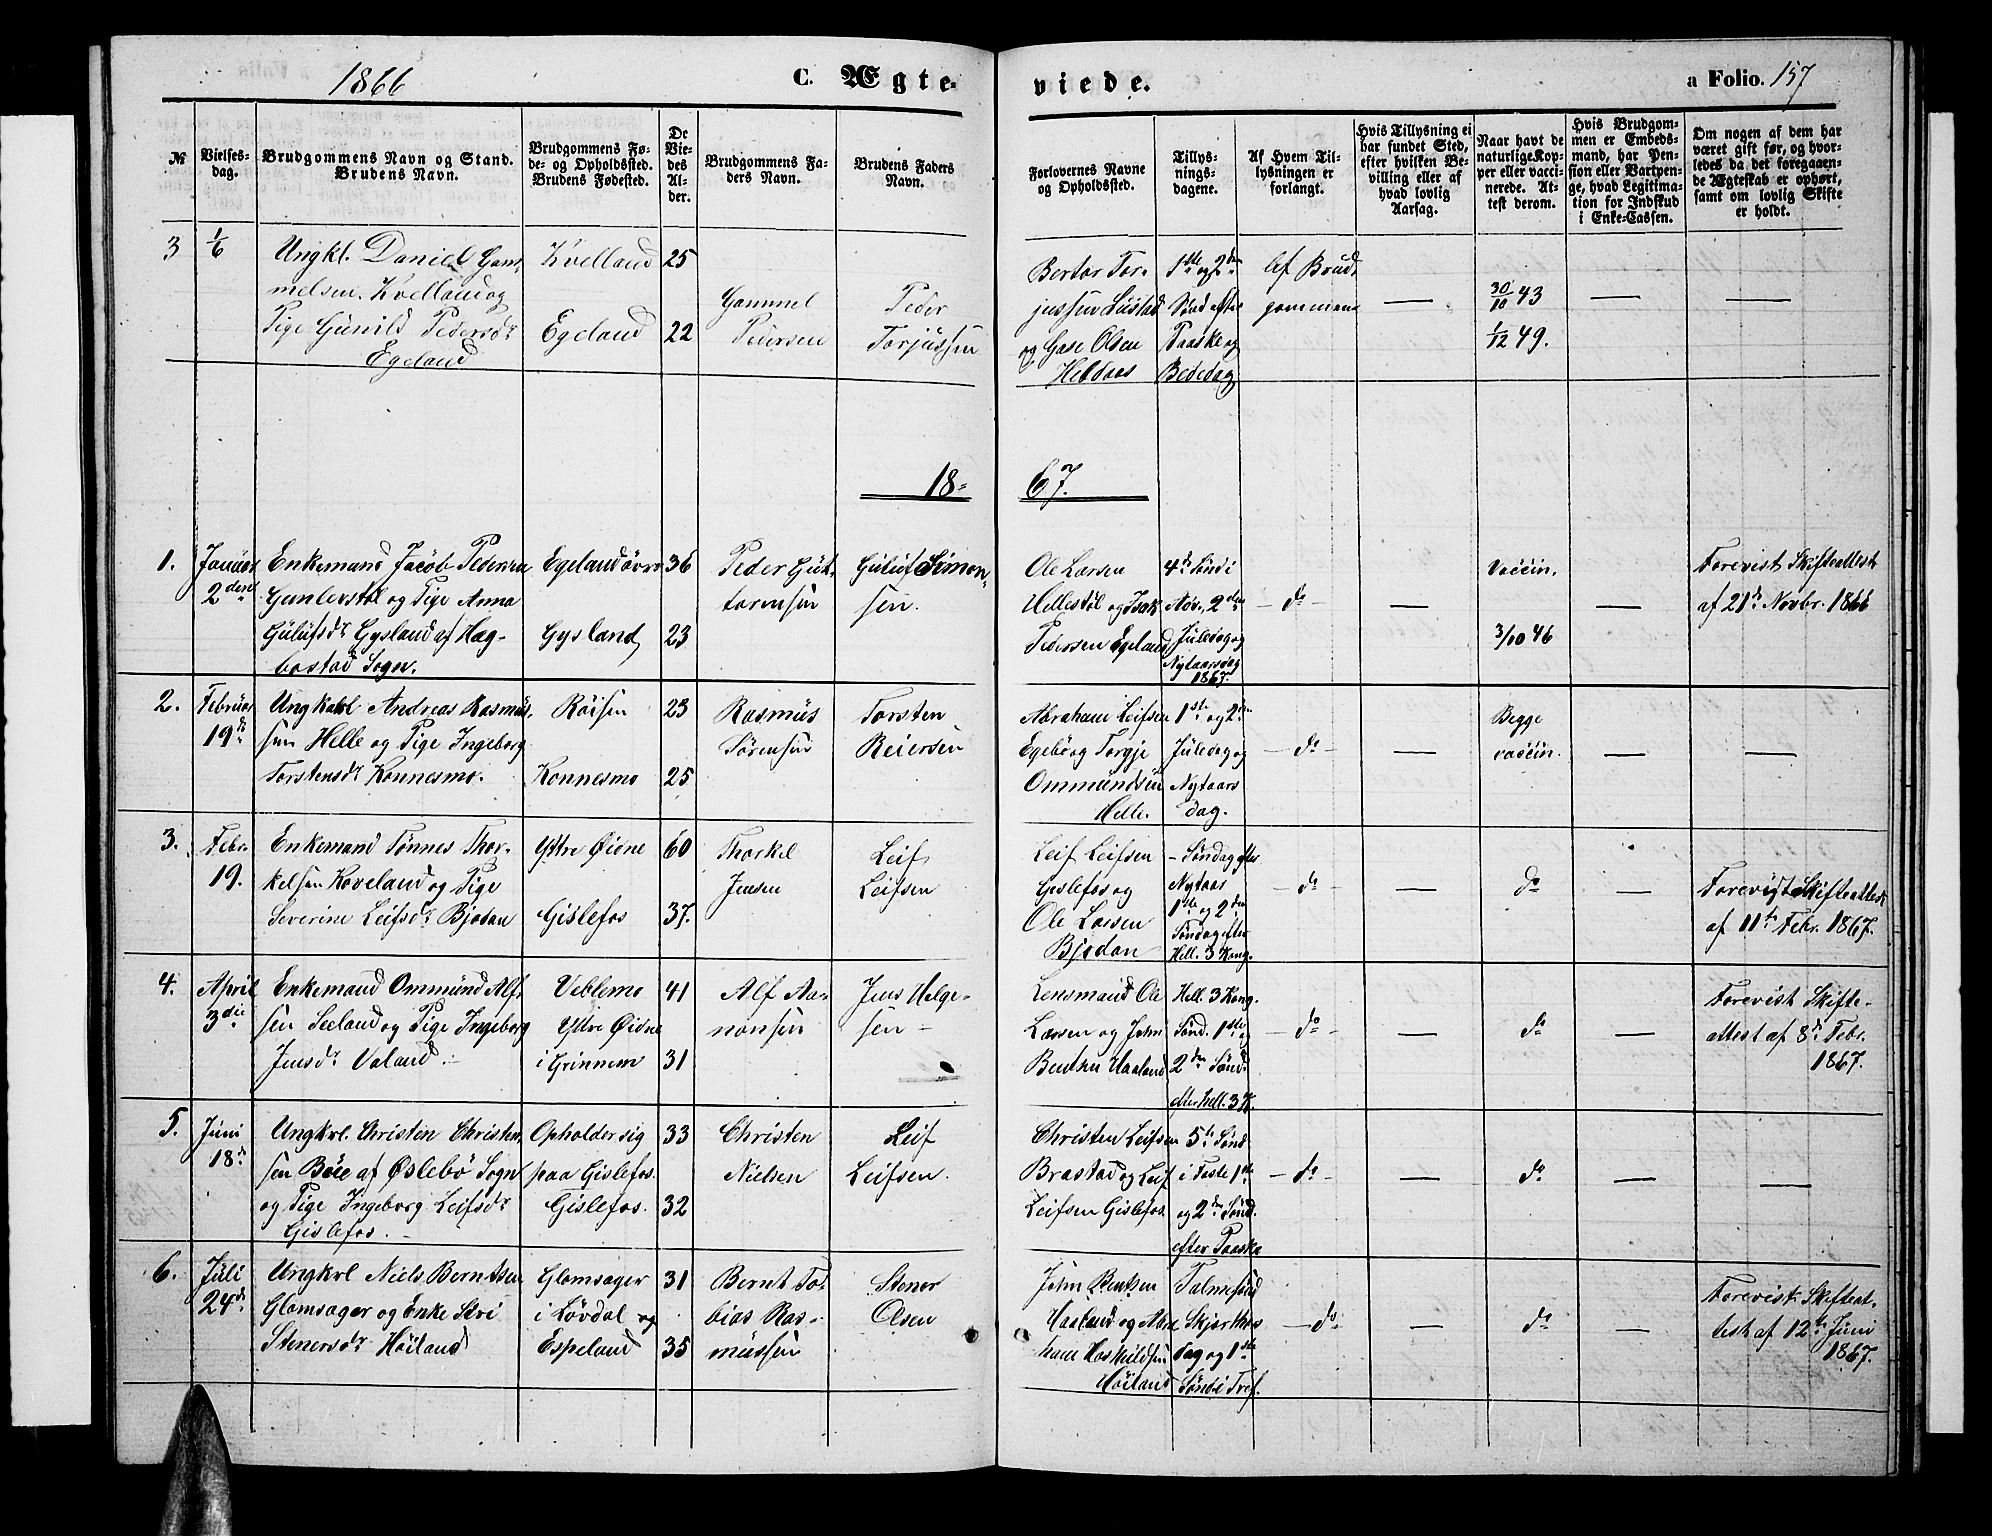 1866
C. Ægte-
viede.
a Folio. 157
№
Vielses-
dag.
Brudgommens Navn og Stand.
Brudens Navn.
Brudgommens Fø-
de- og Opholdssted.
Brudens Fødested.
De
Vie-
des
Al-
der.
Brudgommens Fa-
ders Navn.
Brudens Faders
Navn.
Forlovernes Navne
og Opholdssted.
Tillys-
nings-
dagene.
Af Hvem Til-
lysningen er
forlangt.
Hvis Tillysning ei
har fundet Sted,
efter hvilken Be-
villing eller af
hvad lovlig
Aarsag.
Naar havt de
naturlige Kop-
per eller vacci-
nerede. At-
test derom.
Hvis Brudgom-
men er Embeds-
mand, har Pen-
sion eller Vartpen-
ge, hvad Legitima-
tion for Indskud
i Enke-Cassen.
Om nogen af dem har
været gift før, og hvor-
ledes da det foregaaen-
de Ægteskab er ophørt,
samt om lovlig Skifte
er holdt.
3
1/6
Ungkl. Daniel Gam-
melsen Kvelland og
Pige Gunild Pedersdr
Egeland
Kvelland
Egeland
25
22
Gammel
Pedersen
Peder
Torjussen
Bertor Tor-
jussen Liistad
og Gase Olsen
Heldaas
1ste og 2den
Sønd efter
Paaske og
Bededag
Af Brud-
gommen
—
30/10 43
1/12 49.
—
—
18-
67.
1.
Januar
2den
Enkemand Jacob Pedersen
Gunlevstøl og Pige Anna
Gulufsdr Gysland af Hæg-
bostad Sogn.
Egeland øvre
Gysland
36
23
Peder Gut-
tormsen
Guluf Simon-
sen.
Ole Larsen
Hellestøl og Isak
Pedersen Egeland
4de Sønd i
Adv., 2den
Juledag og
Nytaarsdag
1867.
— do —
—
Vaccin.
3/10 46
—
Forevist Skifteattest
af 21de Novbr. 1866
2.
Februar
19de
Ungkarl Andreas Rasmus-
sen Helle og Pige Ingeborg
Torstensdr Konnesmo.
Röisen
Konnesmo
23
25
Rasmus
Sörensen
Torsten
Reiersen
Abraham Leifsen
Egebö og Torgje
Ommundsen
Helle.
1ste og 2den
Juledag og
Nytaars
dag.
— do —
—
Begge
vaccin.
—
—
3.
Febr.
19.
Enkemand Tønnes Thor-
kelsen Koveland og Pige
Severine Leifsdr Bjodan
Ystre Øidne
Gislefos
60
37.
Thorkel
Jensen
Leif
Leifsen
Leif Leifsen
Gislefos og
Ole Larsen
Bjodan
Søndag efter
Nytaar
1ste og 2den
Søndag efter
Hell. 3 Kong.
— do —
—
do
—
Forevist Skifteattest
af 11te Febr. 1867.
4.
April
3die
Enkemand Ommund Alf-
sen Seeland og Pige Ingeborg
Jensdr Valand.
Veblemo
Ystre Øidne
i Grinnem
41
31
Alf Aa-
nonsen
Jens Helge-
sen
Lensmand Ole
Larsen og John
Bentsen Haaland
Hell. 3 Kong.
Sønd. 1ste og
2den Sønd
efter hell. 3 K.
— do —
—
do
—
Forevist Skifte-
attest af 8de Febr.
1867.
5.
Juni
18de
Ungkrl. Christen Christen-
sen Böie af Øslebö Sogn
og Pige Ingeborg Leifsdr
Gislefos.
Opholder sig
paa Gislefos.
Gislefos.
33
32
Christen
Nielsen
Leif
Leifsen.
Christen Leifsen
Brastad og Leif
Leifsen Gislefos
5te Sønd
i Faste 1ste
og 2den Sønd.
efter Paaske
— do —
—
do
—
—
6.
Juli
24de
Ungkrl Niels Berntsen
Glomsager og Enke Siri
Stenersdr Höiland
Glomsager
i Lövdal og
Espeland
31
35
Bernt To-
bias Ras-
mussen
Stener
Olsen
John Bentsen
Haaland og Abra
ham Haskildsen
Höiland
Palmesønd
Skjærthors
dag og 1ste
Sønd i Tref.
— do —
—
do
—
Forevist Skifteat-
test af 12te Juni
1867.